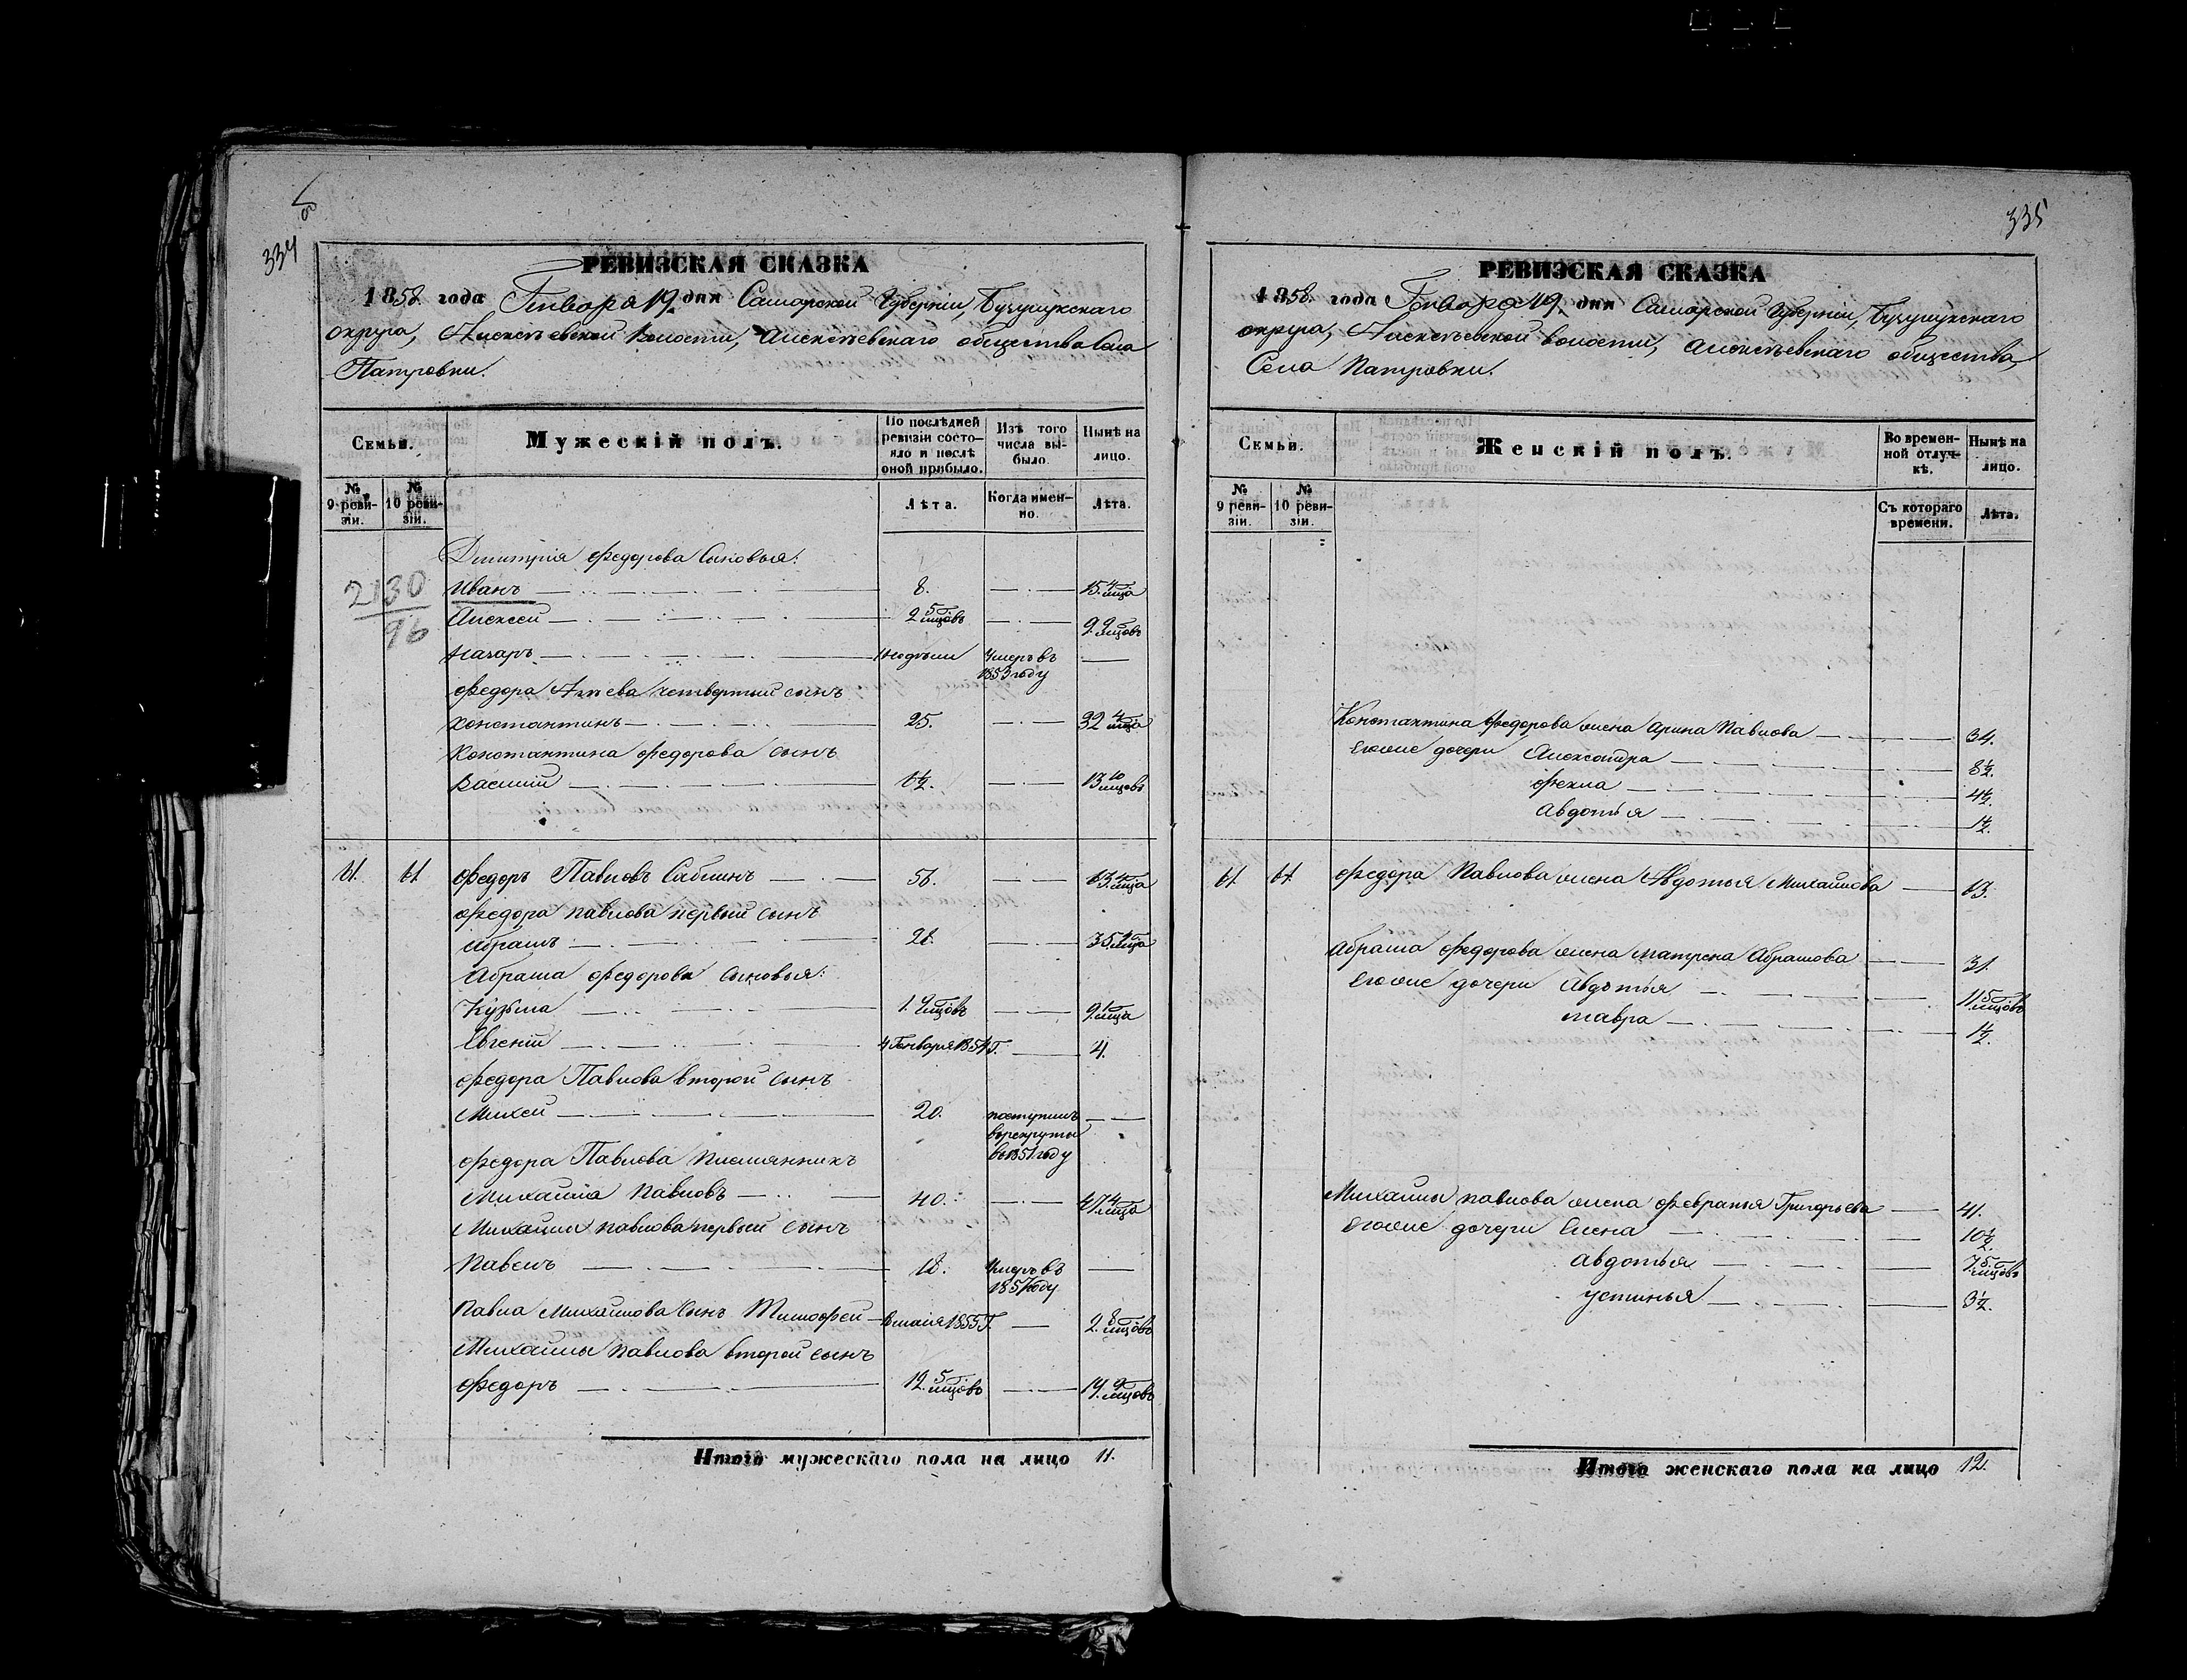 334
РЕВИЗСКАЯ СКАЗКА
1858. года Генваря 19. дня Самарской Губерніи, Бузулукскаго
округа, Алексѣевской волости, Алексѣевскаго общества Села
Патровки.
Семьи.
Мужескій полъ.
По послѣдней ревизіи состояло и послѣ оной прибыло.
Изъ того числа выбыло.
Нынѣ на лицо.
№ 9 ревизіи.
№ 10 ревизіи.
Лѣта.
Когда именно.
Лѣта.
Дмитрія Федорова Сыновья:
2130
96
Иванъ 8. 15. 4 мѣца
Алексѣй 2 5 мѣцовъ 9. 9 мѣцовъ
Назаръ Умеръ въ
1853 году
Федора четвертый сынъ
Константинъ 25. 32 4 мѣца
Константина Федорова сынъ
Василій 6½. 13 10 мѣцовъ
61. 61 Федоръ Павловъ 56. 63. 4 мѣца
Федора Павлова первый сынъ
Абрамъ 28. 35. 4 мѣца
Абрама Федорова сыновья:
Кузьма 1. 9 мѣцовъ 9. 1 мѣца
Евгеній 4 Генваря 1854 Г. 4.
Федора Павлова второй сынъ
Михей 20. поступилъ
в рекруты
в 1851 году
Федора Павлова племянникъ
Михайла Павловъ 40. 47. 4 мѣца
Михайлы Павлова первый сынъ
Павелъ 18. Умеръ въ
1857 году
Павла Михайлова сынъ Тимофей мая 1855 Г. 2. 8 мѣцовъ
Михайлы Павлова второй сынъ
Федоръ 12. 5 мѣцовъ 19. 9 мѣцовъ
Итого мужескаго пола на лицо 11.
335
РЕВИЗСКАЯ СКАЗКА
1858. года Генваря 19. дня Самарской Губерніи, Бузулукскаго
округа, Алексѣевской волости, Алексѣевскаго общества,
Села Патровки.
Семьи.
Женскій полъ.
Во временной отлучкѣ.
Нынѣ на лицо.
№ 9 ревизіи.
№ 10 ревизіи.
Съ котораго времени.
Лѣта.
Константина Федорова жена Арина Павлова 34.
Его же дочери Александра 8½.
Фекла 4½.
Авдотья 1½.
61. 61. Федора Павлова жена Авдотья Михайлова 63.
Абрама Федорова жена Матрена Абрамова 31.
Его же дочери Авдотья 11. 5 мѣцовъ
Мавра 1½.
Михайлы Павлова жена Февранья Григорьева 41.
Его же дочери Елена 10½.
Авдотья 7. 5 мѣцовъ
Устинья 3½.
Итого женскаго пола на лицо 12.